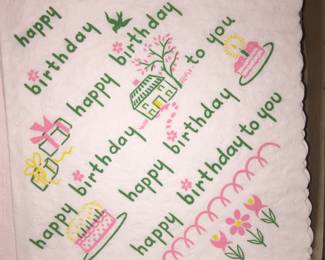 happy birthday
happy birthday to you
happy birthday
happy birthday
happy birthday to you